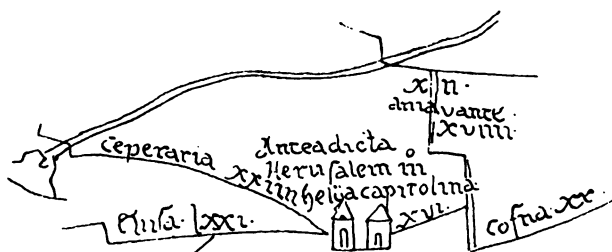 x·n·
amavante
xviiii.
ceperaria
xxiiii
Anteadicta
Herusalem ñ
helya capitolina
eluſa. lxxi.
xvi.
coſna. xv.